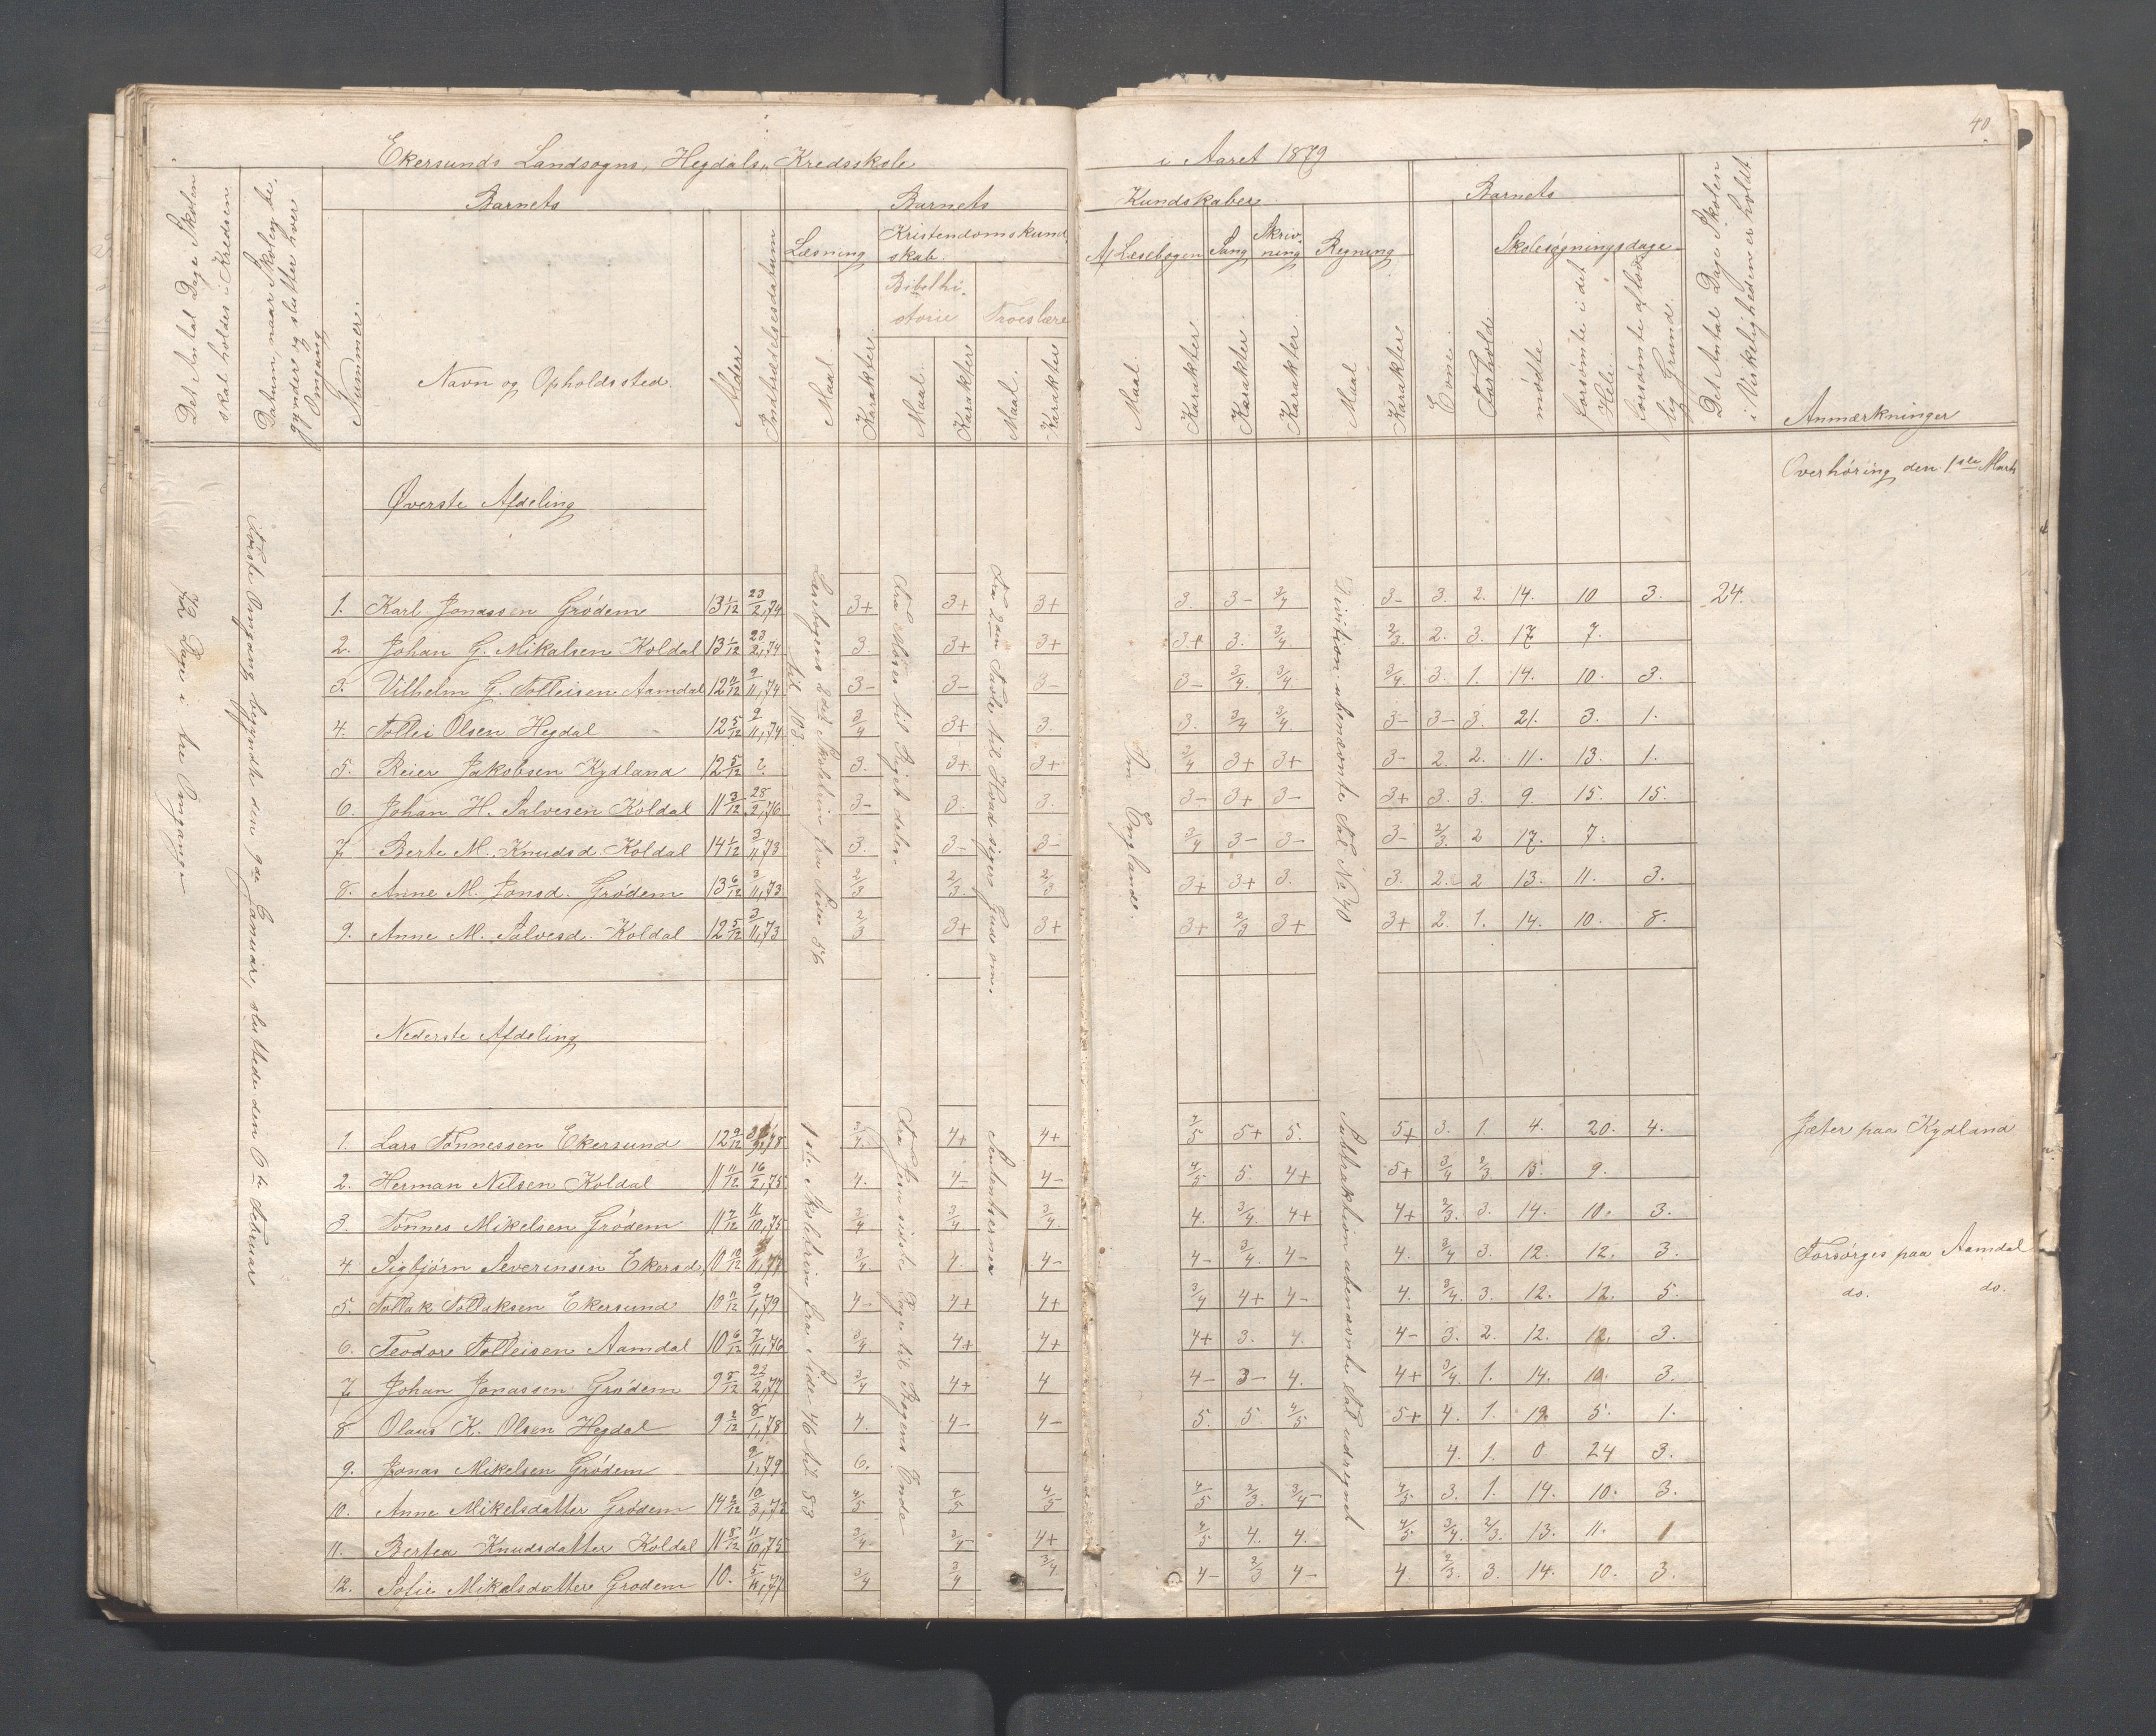 40.
Ekersunds Landsogns, Hegdals, Kredsskole i Aaret 1879
Det Antal Dage Skolen skal holdes i Kredsen
Datum, naar Skolen begynder og slutter hver Omgang
Barnets
Nummer.
Navn og Opholdssted.
Alder
Indtrædelsesdatum
Barnets
Læsning
Maal.
Karakter
Kristendomskundskab.
Bibelhistorie
Maal.
Karakter
Troeslære
Maal.
Karakter
Kundskaber
Af Læsebogen
Maal.
Karakter
Sang
Karakter.
Skrivning
Karakter.
Regning
Maal
Karakter
Barnets
Evne.
Forhold.
Skolesøgningsdage
mødte
forsømte i det Hele.
forsømte af lovlig Grund.
Det Antal Dage Skolen i Virkeligheden er holdt.
Anmærkninger
Øverste Afdeling
Overhøring den 1ste Marts
72 Dage i tre Omgange
Første Omgang begyndte den 9de Januar, sluttede den 6te Februar
Læsebogens 2det Skoletrin fra Siden 56 til 103.
Fra Moses til Riget deles.
Fra 2den Part til Hvad siges Gud om.
Om Englands.
Division ubenævnte Tal No 40
1. Karl Jonassen Grødem 13 1/12 23/2,74 3+ 3+ 3+ 3. 3- 3/4 3- 3. 2. 14. 10 3. 24.
2. Johan G. Mikalsen Koldal 13 1/12 23/2,74 3. 3+ 3+ 3+ 3. 3/4. 2/3. 2. 3. 17 7.
3. Vilhelm G. Tolleisen Aamdal 12 11/12 9/11,74 3- 3- 3- 3- 3/4. 3/4. 3/4. 3. 1. 14. 10. 3.
4. Tollei Olsen Hegdal 12 5/12 9/11,74 3/4 3+ 3. 3. 3/4 3/4. 3- 3- 3. 21. 3. 1.
5. Reier Jakobsen Kydland 12 5/12 ?. 3. 3+ 3+ 3/4 3+ 3+ 3- 2. 2. 11. 13. 1.
6. Johan H. Salvesen Koldal 11 3/12 28/2,76 3- 3. 3. 3- 3+ 3- 3+ 3. 3. 9. 15. 15.
7. Berte M. Knudsd. Koldal 14 1/12 3/11,73 3. 3- 3- 3/4 3- 3- 3- 2/3. 2 17. 7.
8. Anne M. Jonsd. Grødem 13 6/12 3/11,73 2/3 2/3. 2/3 3+ 3+ 3. 3. 2. 2 13. 11. 3.
9. Anne M. Salvesd. Koldal 12 5/12 3/11,73 2/3 3+ 3+ 3+ 2/3 3+ 3+ 2. 1. 14. 10. 8.
Nederste Afdeling
1ste Skoletrin fra Side 46 til 83
Fra Jesu sidste Dage til Bogens Ende
Sententserner
Subtraktion ubenævnte Tal udregnet
1. Lars Tønnessen Ekersund 12 9/12 3/4. 4+ 4+ 4/5 5+ 5. 5+ 3. 1. 4. 20. 4. Jæter paa Kydland
2. Herman Nilsen Koldal 11 11/12 16/2,75 4. 4- 4- 4/5 5. 4+ 5+ 3/4 2/3. 15. 9.
3. Tønnes Mikelsen Grødem 11 7/12 11/10,75 3/4 3/4 3/4. 4. 3/4. 4+ 4+ 2/3. 3. 14. 10. 3.
4. Sigbjørn Severinsen Ekersd. 10 10/12 3/4. 4. 4- 4- 3/4. 4- 4. 3/4 3. 12. 12. 3. Forsørges paa Aamdal
5. Tollak Tollaksen Ekersund 10 11/12 9/1,79 4- 4+ 4+ 3/4 4+ 4- 4. 3/4. 3. 12. 12. 5. do. do.
6. Teodor Tolleisen Aamdal 10 6/12 7/11,76 3/4. 4+ 4+ 4+ 3. 4. 4- 3. 2. 12. 12. 3.
7. Johan Jonassen Grødem 9 8/12 23/2,77 3/4 4+ 4 4- 3- 4. 4+ 3/4. 1. 14. 10. 3.
8 Olaus K. Olsen Hegdal 9 2/12 8/1,78 4. 4- 4- 5. 5. 4/5 5+ 4. 1. 19. 5. 1.
9. Jonas Mikelsen Grødem 9/1,79 6. 4. 1. 0. 24 3.
10. Anne Mikelsdatter Grødem 14 2/12 10/3,72 4/5 4/5 4/5 4/5 2/3. 3/4- 4/5 3. 1. 14. 10. 3.
11. Bertea Knudsdatter Koldal 11 8/12 11/10,75 3/4 3/4- 4+ 4/5 4. 4. 4/5 3/4. 2/3. 13. 11. 1
12. Sofie Mikalsdatter Grødem 10. 5/11,77 3/4 3/4 3/4 4- 2/3 4- 4. 2/3. 3. 14. 10. 3.